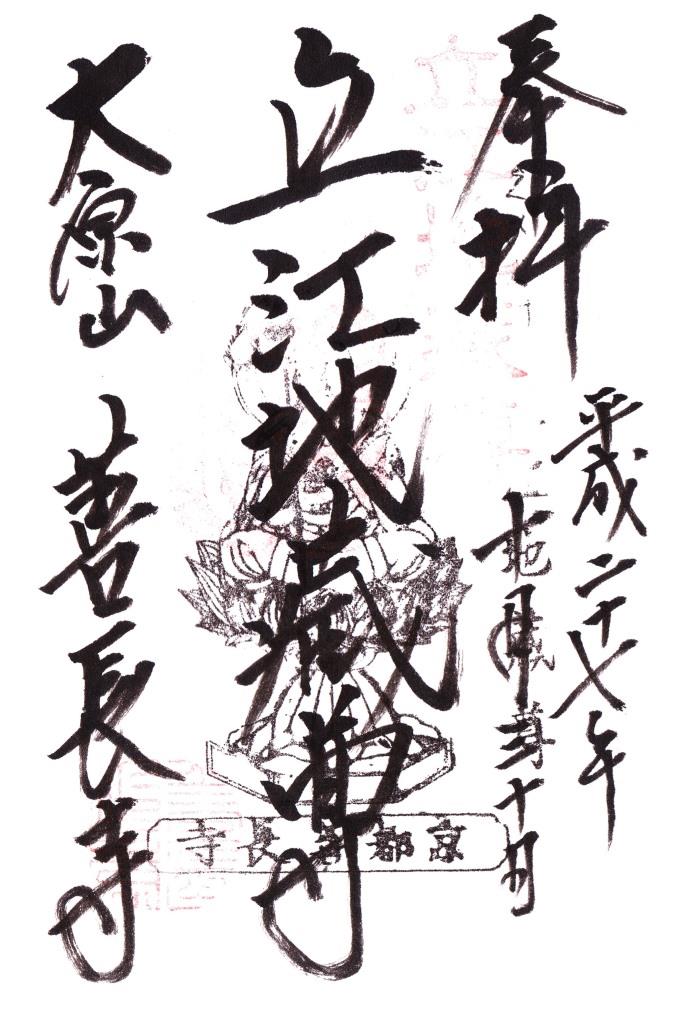 奉拝
平成二十七年
十月
立江地蔵尊
大原山
善長寺
京都善長寺